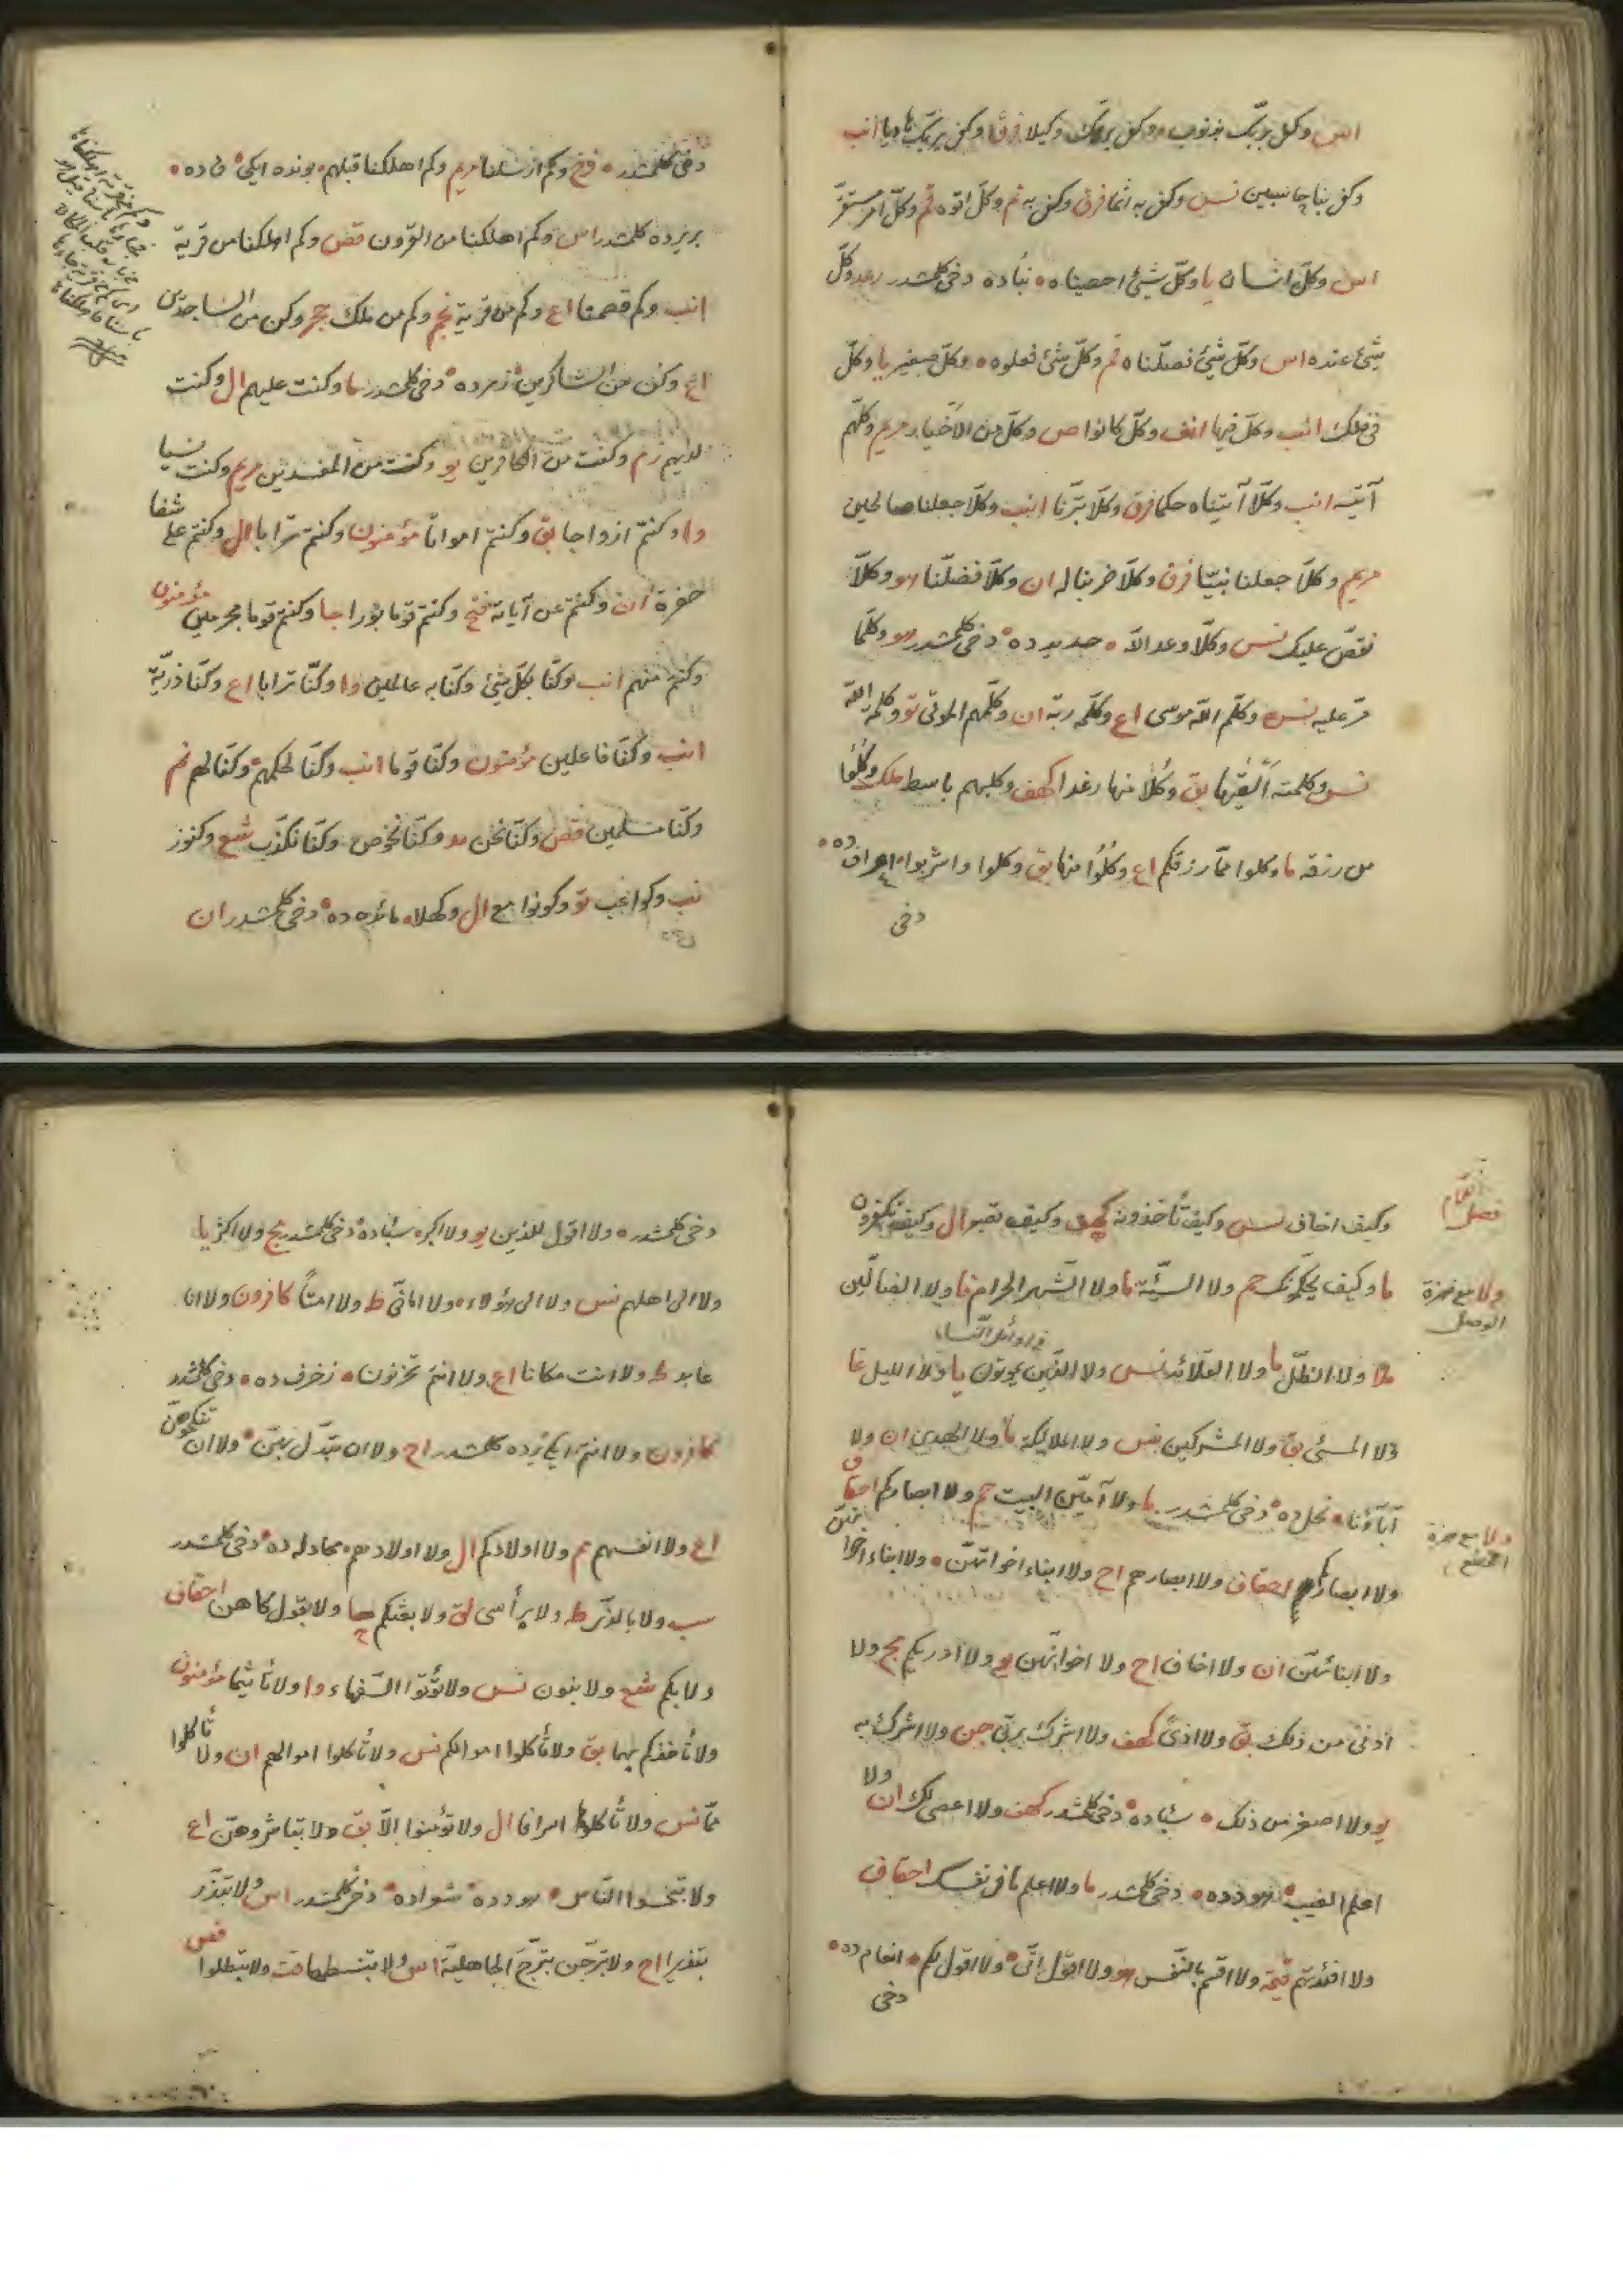 اس وكفى بربك بذنوب وكفى بربك وكيلا فرق وكفى بربك هاديا انب
وكفى بنا حاسبين نس وكفى به اثما فرق وكفى به قم وكل اتوه قم وكل امر مستقر
اس وكل انسان يا وكل شيئ احصيناه نباده دخى كلمشدر رعد وكل
شيئ عنده اس وكل شيئ فصلناه قم وكل شيئ فعلوه وكل صغير يا وكل
فى فلك انب وكل فيها انف وكل كانوا ص وكل من الاخيار مريم وكلهم
آتيه انب وكلا آتيناه حكما فرق وكلا تبرنا انب وكلا جعلنا صالحين
مريم وكلا جعلنا نبيا فرق وكلا ضربنا له ان وكلا فضلنا هو وكلا
نقص عليك نس وكلا وعد الله حديد ده دخى كلمشدر هو وكلما
مر عليه نس وكلم الله موسى اع وكلمه ربه ان وكلمهم الموتى تو وكلمة الله
نس وكلمته القيها بق وكلا منها رغدا كهف وكلبهم باسط ملك وكلوا
من رزقه ما وكلوا مما رزقكم اع وكلوا منها بق وكلوا واشربوا اعراف ده
دخى
دخى كلمشدر زخ وكم ارسلنا مريم وكم اهلكنا قبلهم بونده ايكى ق ده
بر يرده كلمشدر اس وكم اهلكنا من القرون قص وكم اهلكنا من قرية
انب وكم قصمنا اع وكم من قرية نجم وكم من ملك حجر وكن من الساجدين
اع وكن من الشاكرين زمرده دخى كلمشدر ما وكنت عليهم ال وكنت
لديهم زم وكنت من الكافرين يو وكنت من المفسدين مريم وكنت نسيا
وا وكنتم ازواجا بق وكنتم امواتا مؤمنون وكنتم ترابا ال وكنتم على شفا
حفرة ان وكنتم عن آياته فتح وكنتم قوما بورا جا وكنتم قوما مجرمين مؤمنون
وكنتم منهم انب وكنا بكل شيئ وكنا به عالمين وا وكنا ترابا اع وكنا ذرية
انب وكنا فاعلين مؤمنون وكنا قوما انب وكنا لحكمهم وكنا لهم نم
وكنا مسلمين قص وكنا نحن مد وكنا نخوض وكنا نكذب شع وكنوز
نب وكواعب تو وكونوا مع ال وكهلا مائده ده دخى كلمشدر ان
وكيف اخاف نس وكيف تأخذونه كهف وكيف تصبر ال وكيف تكفرون
انعام
فصل
ما وكيف يحكمونك حم ولا السيئة ما ولا الشهر الحرام فا ولا الضالين
ولا مع همزة
الوصل
ملا ولا الظل ما ولا القلائد نس ولا الذين يموتون يا ولا الليل غا
فى اوائل النساء
ولا المسيئ بق ولا المشركين نس ولا الملائكة ما ولا الهدى ان ولا
آباؤنا نحل ده دخى كلمشدر ما ولا آمين البيت حم ولا ابصاركم احقاف
ولا مع همزة
القطع
ولا ابصاركم احقاف ولا ابصارهم اح ولا ابناء اخواتهن ولا ابناء اخوانهن
ولا ابنائهن ان ولا اخاف اح ولا اخوانهن يو ولا ادريكم مج ولا
ادنى من ذلك بق ولا اذى كهف ولا اشرك بربى جن ولا اشرك به
يو ولا اصغر من ذلك سباده دخى كلمشدر كهف ولا اعصى لك ان ولا
اعلم الغيب هودده دخى كلمشدر ما ولا اعلم ما فى نفسك احقاف
ولا افئدتهم قيمة ولا اقسم بالنفس هو ولا اقول انى ولا اقول لكم انعام ده
دخى
دخى كلمشدر ولا اقول للذين يو ولا اكبر سباده دخى كلمشدر مج ولا اكثر يا
ولا الى اهلهم نس ولا الى هؤلاء ولا امانى ط ولا امتا كافرون ولا انا
عابد ط ولا انت مكانا اع ولا انتم تحزنون زخرف ده دخى كلمشدر
كافرون ولا انتم ايكى يرده كلمشدر اح ولا ان تبدل بهن ولا ان تنكحوهن
اع ولا انفسهم مم ولا اولادكم ال ولا اولادهم مجادله ده دخى كلمشدر
سب ولا بالذى ط ولا برأسى لق ولا بعثكم حا ولا بقول كاهن احقاف
ولا بكم شع ولا بنون نس ولا تؤتوا السفهاء وا ولا تأثيما مؤمنون
ولا تأخذكم بهما بق ولا تأكلوا اموالكم نس ولا تأكلوا اموالهم ان ولا تأكلوا
مما نس ولا تأكلوها اسرافا ال ولا تؤمنوا الا بق ولا تباشروهن اع
ولا تبخسوا الناس هودده شعراده دخى كلمشدر اس ولا تبذر
تبذيرا اح ولا تبرجن تبرج الجاهلية اس ولا تبسطها قت ولا تبطلوا قص